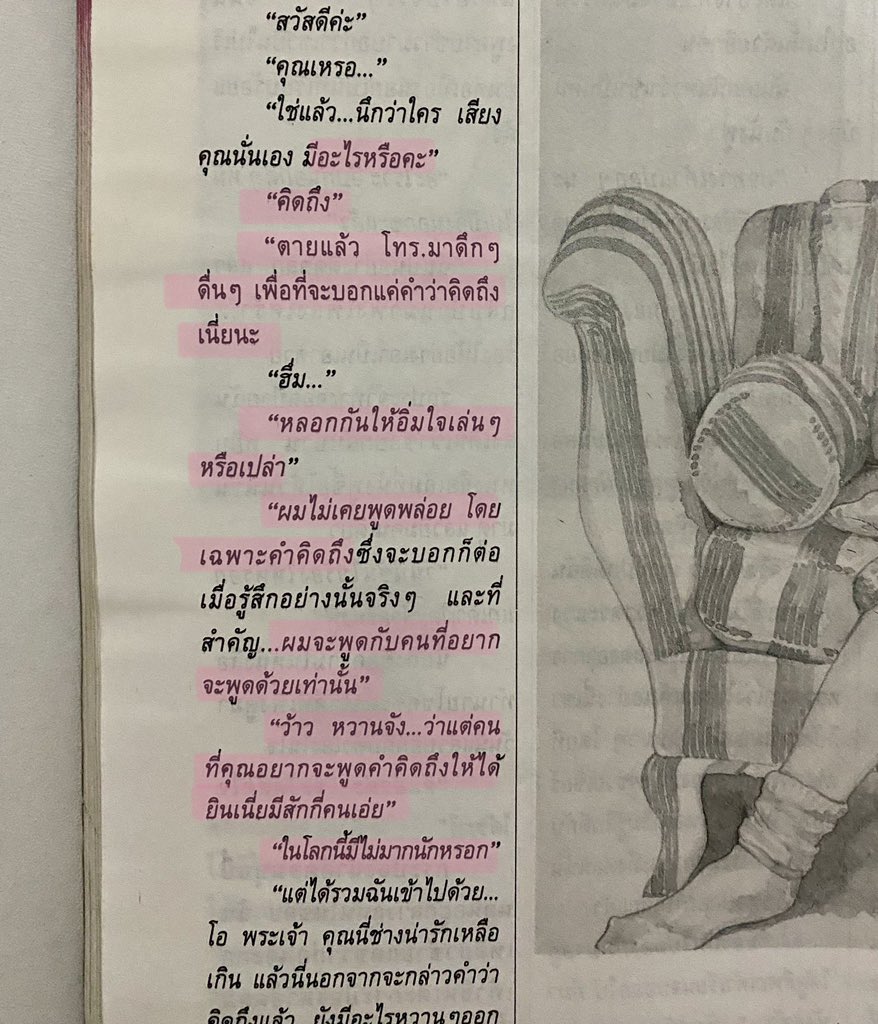 “สวัสดีค่ะ”
“คุณเหรอ...”
“ใช่แล้ว...นึกว่าใคร เสียง
คุณนั่นเอง มีอะไรหรือคะ”
“คิดถึง”
“ตายแล้ว โทร.มาดึกๆ
ดื่นๆ เพื่อที่จะบอกแค่คำว่าคิดถึง
เนี่ยนะ
“ฮึ่ม...”
“หลอกกันให้อิ่มใจเล่นๆ
หรือเปล่า”
“ผมไม่เคยพูดพล่อย โดย
เฉพาะคำคิดถึงซึ่งจะบอกก็ต่อ
เมื่อรู้สึกอย่างนั้นจริงๆ และที่
สำคัญ...ผมจะพูดกับคนที่อยาก
จะพูดด้วยเท่านั้น”
“ว้าว หวานจัง...ว่าแต่คน
ที่คุณอยากจะพูดคำคิดถึงให้ได้
ยินเนี่ยมีสักกี่คนเอ่ย”
“ในโลกนี้มีไม่มากนักหรอก”
“แต่ได้รวมฉันเข้าไปด้วย...
โอ พระเจ้า คุณนี่ช่างน่ารักเหลือ
เกิน แล้วนี่นอกจากจะกล่าวคำว่า
คิดถึงแล้ว ยังมีอะไรหวานๆออก